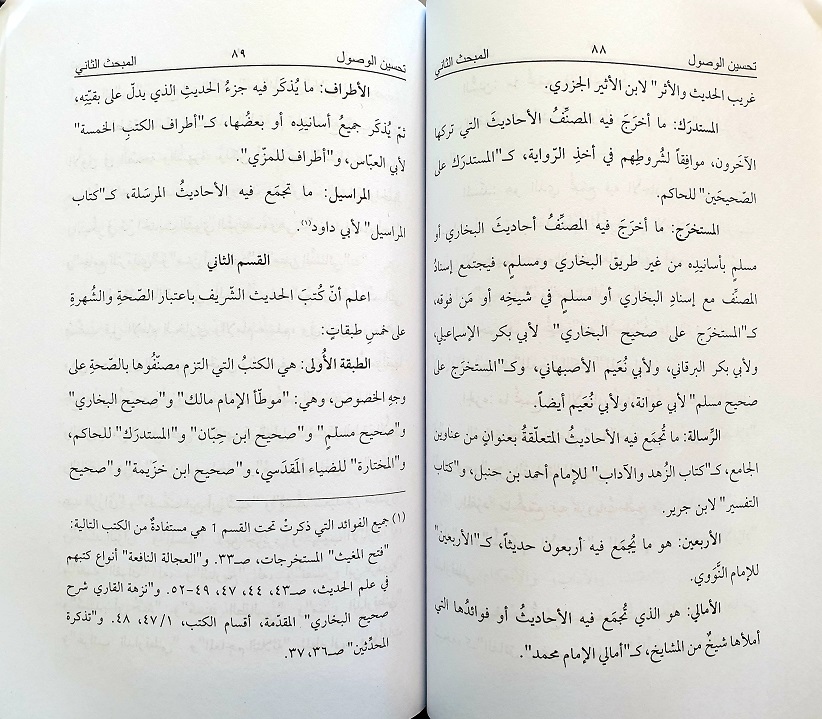 تحسين الوصول ٨٨ المبحث الثاني
غريب الحديث والأثر" لابن الأثير الجزري.
المستدرَك: ما أخرَج فيه المصنِّفُ الأحاديثَ التي تركها
الآخَرون، موافِقاً لشُروطِهم في أخذِ الرّواية، كـ"المستدرَك على
الصّحيحَين" للحاكم.
المستخرَج: ما أخرَجَ فيه المصنِّفُ أحاديثَ البخاري أو
مسلمٍ بأسانيدِه من غير طريق البخاري ومسلمٍ، فيجتمع إسنادُ
المصنِّف مع إسنادِ البخاري أو مسلمٍ في شيخِه أو مَن فوقَه،
كـ"المستخرَج على صحيح البخاري" لأبي بكر الإسماعيلي،
ولأبي بكر البرقاني، ولأبي نُعَيم الأصبهاني، وكـ"المستخرَج على
صحيح مسلم" لأبي عوانة، ولأبي نُعَيم أيضاً.
الرِّسالة: ما تُجمَع فيه الأحاديثُ المتعلّقةُ بعنوانٍ من عناوين
الجامع، كـ"كتاب الزُهد والآداب" للإمام أحمد بن حنبل، و"كتاب
التفسير" لابن جرير.
الأربعين: هو ما يُجمَع فيه أربعون حديثاً، كـ"الأربعين"
للإمام النَّوَوي.
الأمالي: هو الذي تُجمَع فيه الأحاديثُ أو فوائدُها التي
أملاها شيخٌ من المشايخ، كـ"أمالي الإمام محمد".
تحسين الوصول ٨٩ المبحث الثاني
الأطراف: ما يُذكَر فيه جزءُ الحديثِ الذي يدلّ على بقيّتِه،
ثمّ يُذكَر جميعُ أسانيدِه أو بعضُها، كـ"أطراف الكتبِ الخمسة"
لأبي العبّاس، و"أطراف للمزّي".
المراسيل: ما تجمَع فيه الأحاديثُ المرسَلة، كـ"كتاب
المراسيل" لأبي داود(١).
القسم الثاني
اعلم أنّ كُتبَ الحديث الشّريف باعتبار الصّحةِ والشُهرةِ
على خمسِ طبقاتٍ:
الطبقة الأُولى: هي الكتبُ التي التزم مصنّفُوها بالصّحةِ على
وجهِ الخصوص، وهي: "موطّأ الإمام مالك" و"صحيح البخاري"
و"صحيح مسلمٍ" و"صحيح ابن حِبّان" و"المستدرَك" للحاكم،
و"المختارة" للضياء المَقدَسي، و"صحيح ابن خزَيمة" و"صحيح
(١) جميع الفوائد التي ذكرتْ تحت القسم 1 هي مستفادةٌ من الكتب التالية:
"فتح المغيث" المستخرجات، صـ٣٣. و"العجالة النافعة" أنواع كتبهم
في علم الحديث، صـ٤٣، ٤٤، ٤٧، ٤٩-٥٢. و"نزهة القاري شرح
صحيح البخاري" المقدّمة، أقسام الكتب، ٤٧/١، ٤٨. و"تذكرة
المحدِّثين" صـ٣٦، ٣٧.